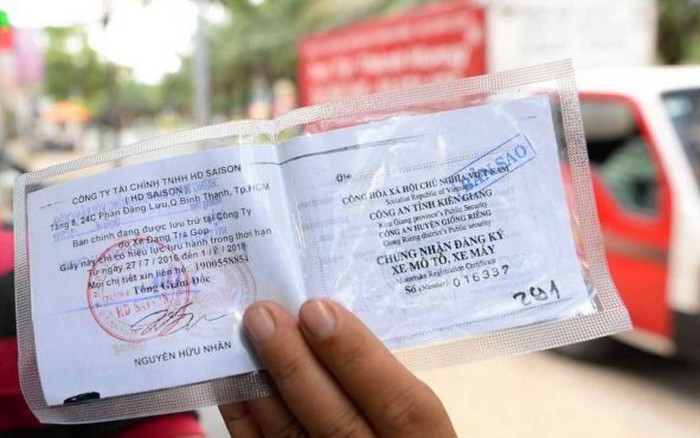 CÔNG TY TÀI CHÍNH TNHH HD SAISON
( HD SAISON)
Tầng 8, 24C Phan Đăng Lưu,Q.Bình Thạnh, Tp.HCM
Bản chính đang được lưu trữ tại Công Ty
do Xe Đang Trả Góp
Giấy này chỉ có hiệu lực lưu hành trong thời hạn
Từ ngày 27 / 7 / 2016 đến 1 / 8 / 2018
Mọi chi tiết xin liên hệ 1900558854
Tổng Giám Đốc
HD SAISON
NGUYỄN HỮU NHÂN
BẢN SAO
CỘNG HÒA XÃ HỘI CHỦ NGHĨA VIỆT NAM
Socialist Republic of Vietnam
CÔNG AN TỈNH KIÊN GIANG
Kien Giang province's Public Security
CÔNG AN HUYỆN GIỒNG RIỀNG
Giong Rieng district's Public Security
CHỨNG NHẬN ĐĂNG KÝ
XE MÔ TÔ, XE MÁY
Motorbike Registration Certificate
Số (Number) 016337
291